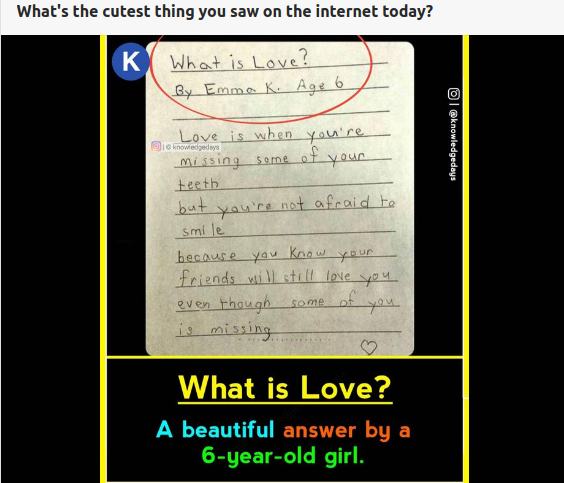 What's the cutest thing you saw on the internet today?
K
What is Love?
By Emma K. Age 6
Love is when you're
@knowledgedays
missing some of your
teeth
but you're not afraid to
smile
because you know your
friends will still love you
even though some of you
is missing
| @knowledgedays
What is Love?
A beautiful answer by a
6-year-old girl.